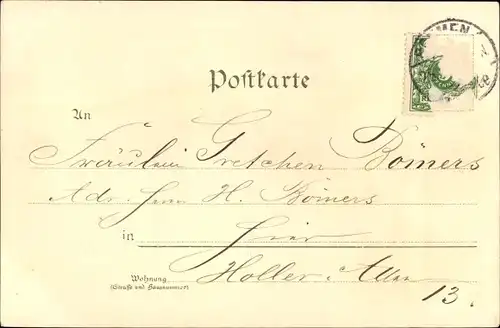 MEN
Postkarte
An
Fräulein Gretchen Bömers
Adr. Herrn H. Bömers
in Hier
Wohnung
(Straße und Hausnummer)
Holler-Allee
13.